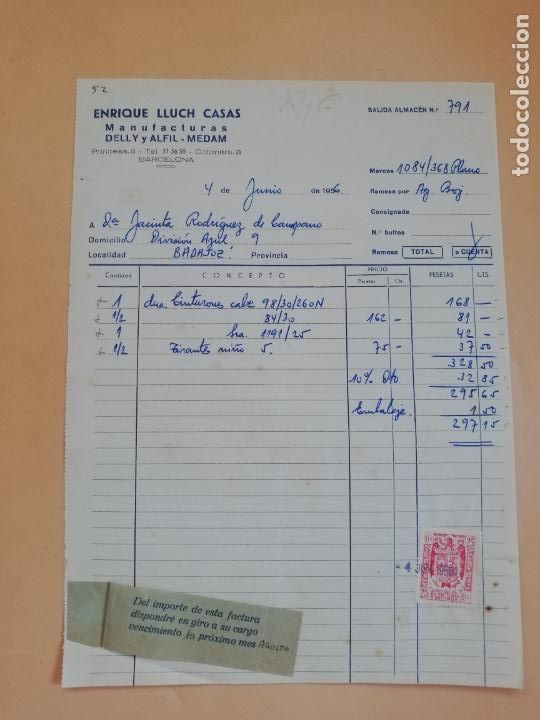 52
ENRIQUE LLUCH CASAS
Manufacturas
DELLY y ALFIL - MEDAM
Princesa, 6 - Tel. 21 36 58 - Cotoners, 8
BARCELONA
RyC
SALIDA ALMACÉN N.º 791
Marcas 1084/368 Plano
4 de Junio de 1956.
Remesa por Ag. Boj.
Consignada
A Dª Jacinta Rodríguez de Campano
N.º bultos
Domicilio División Azul, 9
Localidad BADAJOZ. Provincia
Remesa TOTAL a CUENTA
Cantidad CONCEPTO PRECIO PESETAS CTS.
Pesetas Cts.
1 dna. Cinturones cab. 98/30/260N 168 —
1/2 84/30 162 — 81 —
1 Sra. 1191/25 42 —
1/2 Tirantes niño 5. 75 — 37 50
328 50
10% Dto 32 85
295 65
Embalaje. 1 50
297 15
25 25
Del importe de esta factura
dispondré en giro a su cargo
vencimiento 10 próximo mes AGOSTO
todocoleccion